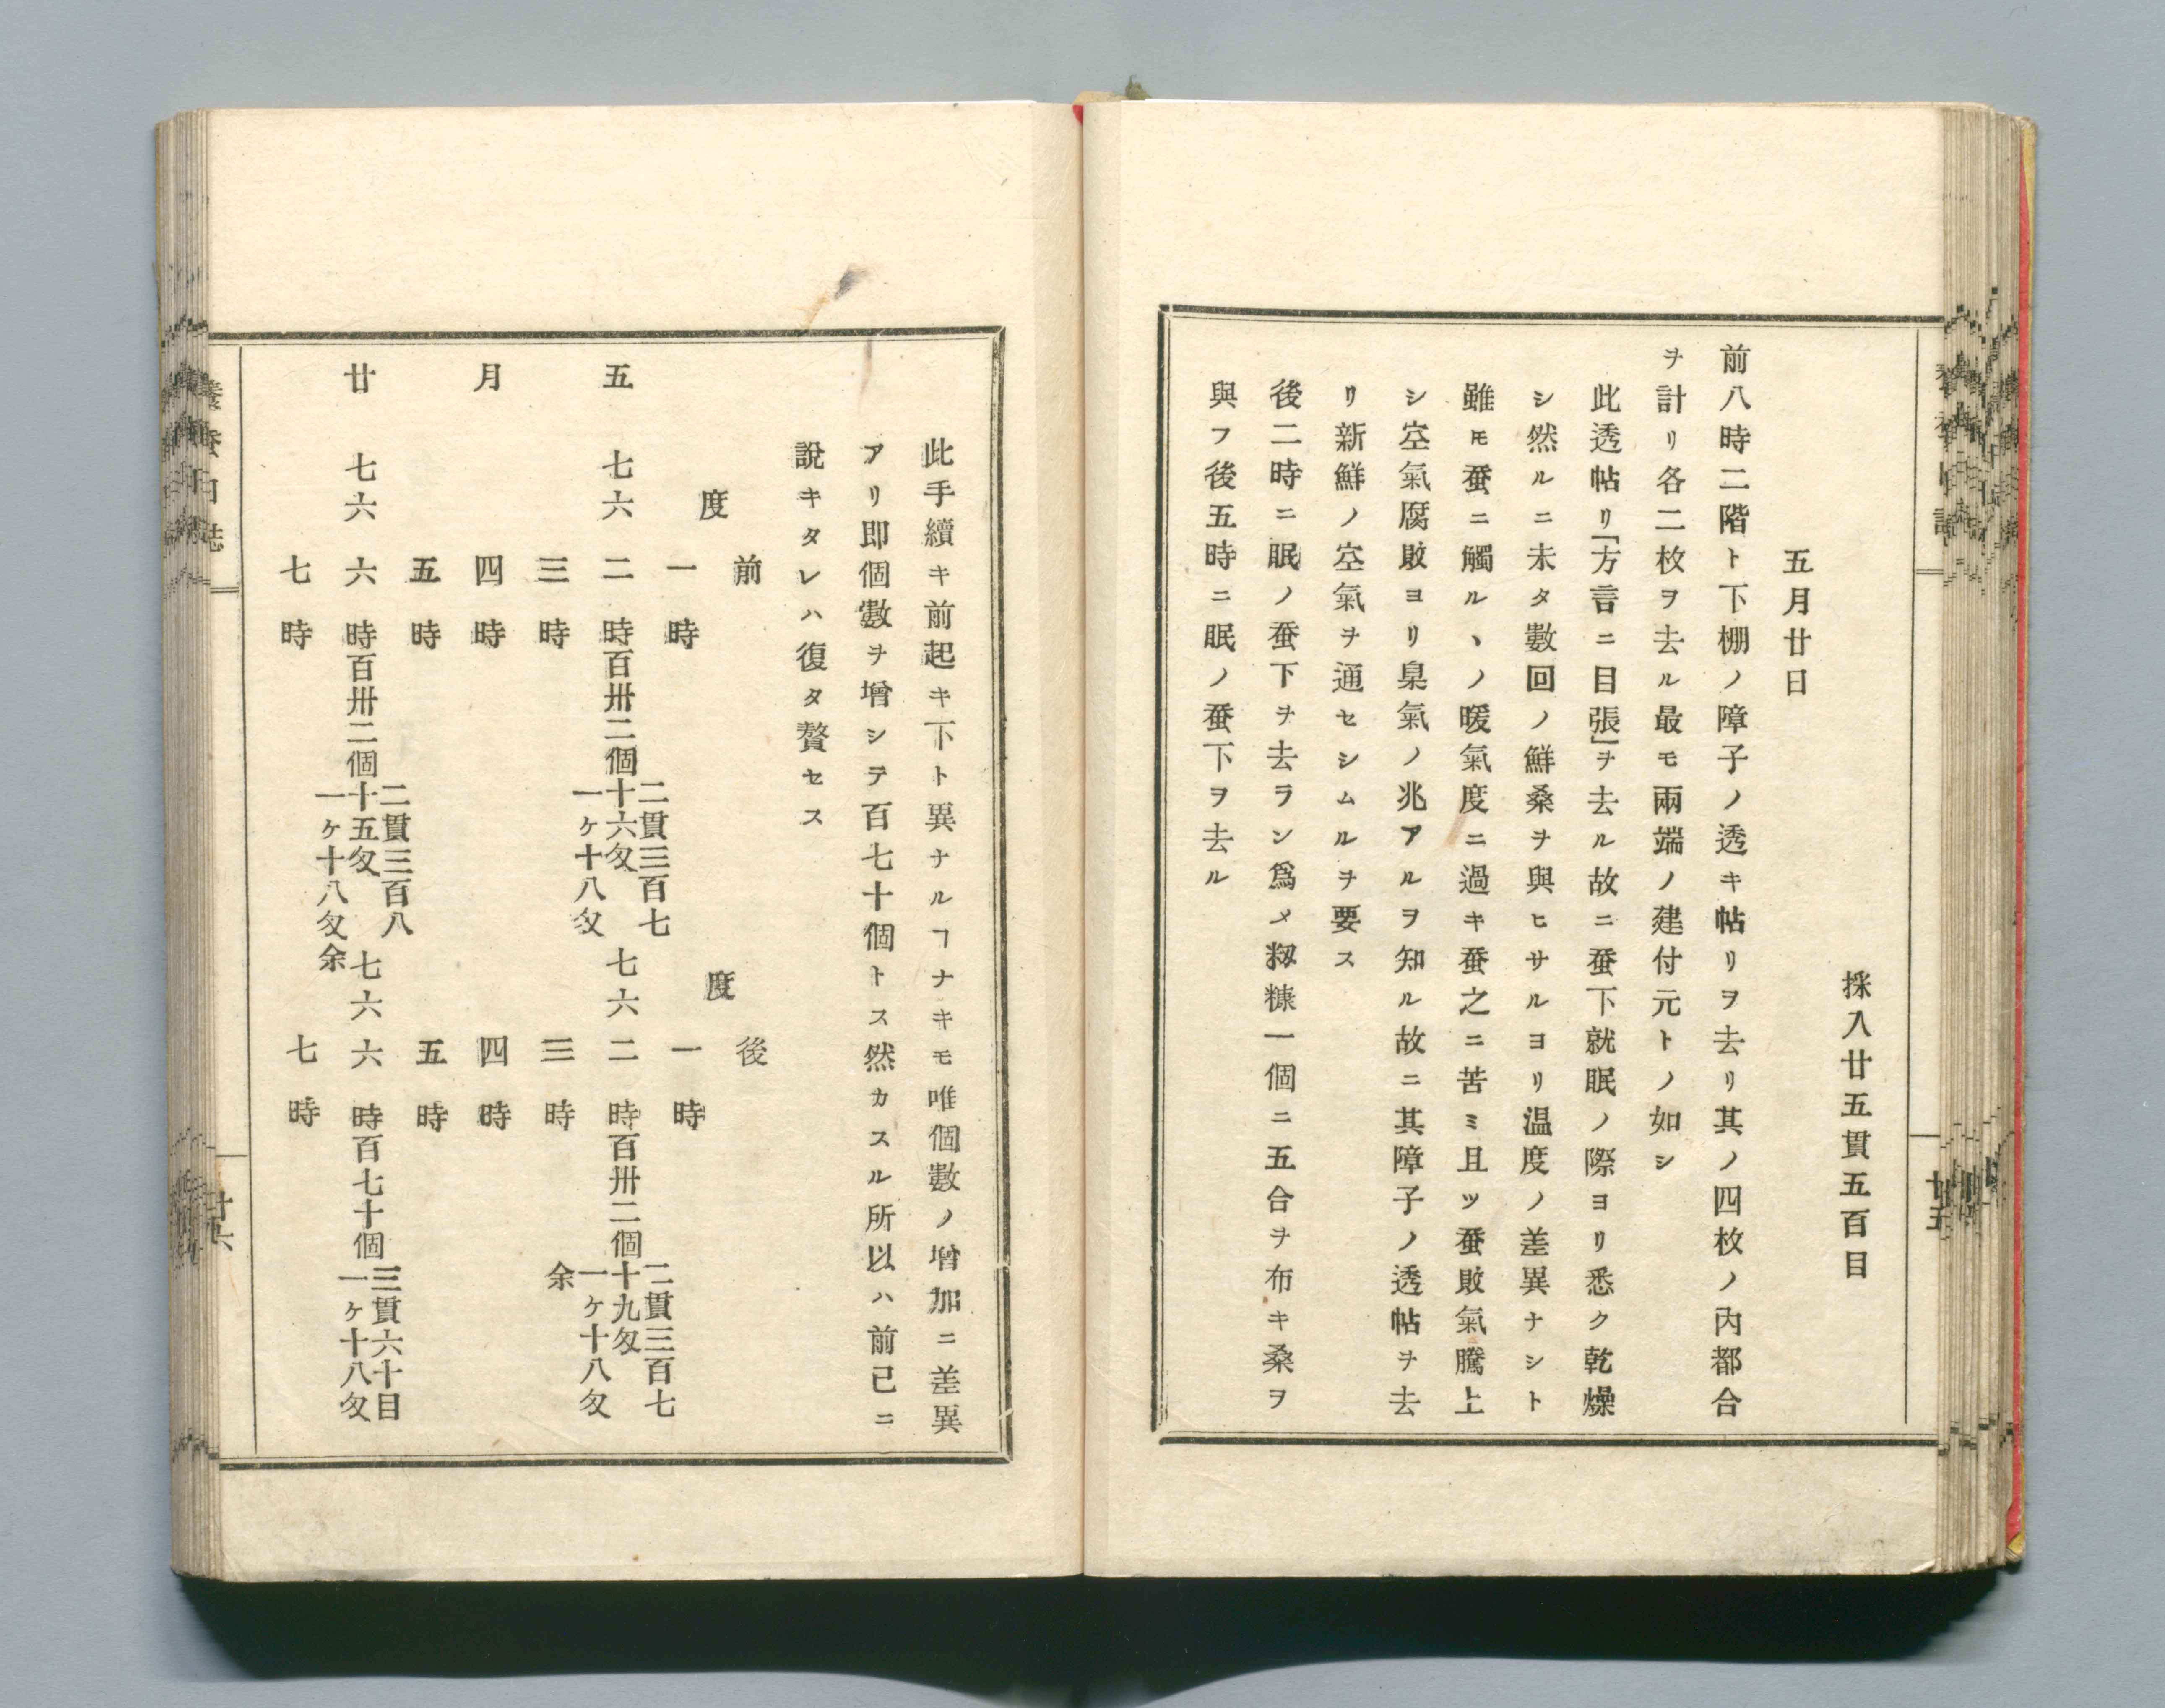 採入廿五貫五百目
五月廿日
前八時二階ト下棚ノ障子ノ透キ帖リヲ去リ其ノ四枚ノ內都合
ヲ計リ各二枚ヲ去ル最モ兩端ノ建付元トノ如シ
此透帖リ「方言ニ目張」ヲ去ル故ニ蚕下就眠ノ際ヨリ悉ク乾燥
シ然ルニ未タ數回ノ鮮桑ヲ與ヒサルヨリ温度ノ差異ナシト
雖ㇳモ蚕ニ觸ルヽノ暖氣度ニ過キ蚕之ニ苦ミ且ツ蚕敗氣騰上
シ空氣腐敗ヨリ臭氣ノ兆アルヲ知ル故ニ其障子ノ透帖ヲ去
リ新鮮ノ空氣ヲ通セシムルヲ要ス
後二時ニ眠ノ蚕下ヲ去ラン爲メ籾糠一個ニ五合ヲ布キ桑ヲ
與フ後五時ニ眠ノ蚕下ヲ去ル
此手續キ前起キ下ト異ナルヿナキモ唯個數ノ增加ニ差異
アリ即個數ヲ增シテ百七十個トス然カスル所以ハ前已ニ
說キタレハ復タ贅セス
前 後
度 度
一時 一時
五 七六 二時百卅二個 二貫三百七十六匁 一ヶ十八匁 七六 二時百卅二個 二貫三百七十九匁 一ヶ十八匁余
三時 三時
月 四時 四時
五時 五時
廿 七六 六時百卅二個 二貫三百八十五匁 一ヶ十八匁余 七六 六時百七十個 三貫六十目 一ヶ十八匁
七時 七時
養蚕日誌 廿六